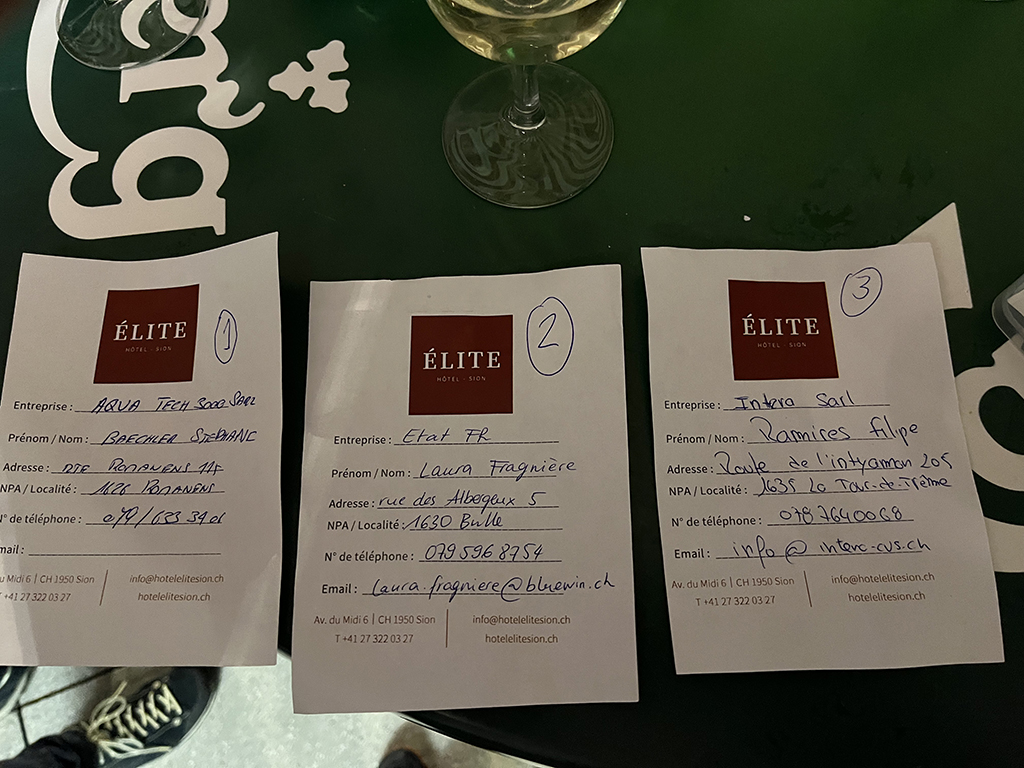 ÉLITE
HÔTEL - SION
1
Entreprise : AQUA TECH 3000 SARL
Prénom / Nom : BAECHLER STEPHANE
Adresse : RTE ROMANENS 117
NPA / Localité : 1626 ROMANENS
N° de téléphone : 079 / 633 34 01
mail :
u Midi 6 | CH 1950 Sion
T +41 27 322 03 27
info@hotelelitesion.ch
hotelelitesion.ch
ÉLITE
HÔTEL - SION
2
Entreprise : Etat FR
Prénom / Nom : Laura Fragnière
Adresse : rue des Albergeux 5
NPA / Localité : 1630 Bulle
N° de téléphone : 079 596 87 54
Email : laura.fragniere@bluewin.ch
Av. du Midi 6 | CH 1950 Sion
T +41 27 322 03 27
info@hotelelitesion.ch
hotelelitesion.ch
ÉLITE
HÔTEL - SION
3
Entreprise : Intera Sarl
Prénom / Nom : Ramires filipe
Adresse : Route de l'intyamon 205
NPA / Localité : 1635 La Tour-de-Trême
N° de téléphone : 078 764 00 68
Email : info @ intera-cvs.ch
Av. du Midi 6 | CH 1950 Sion
T +41 27 322 03 27
info@hotelelitesion.ch
hotelelitesion.ch